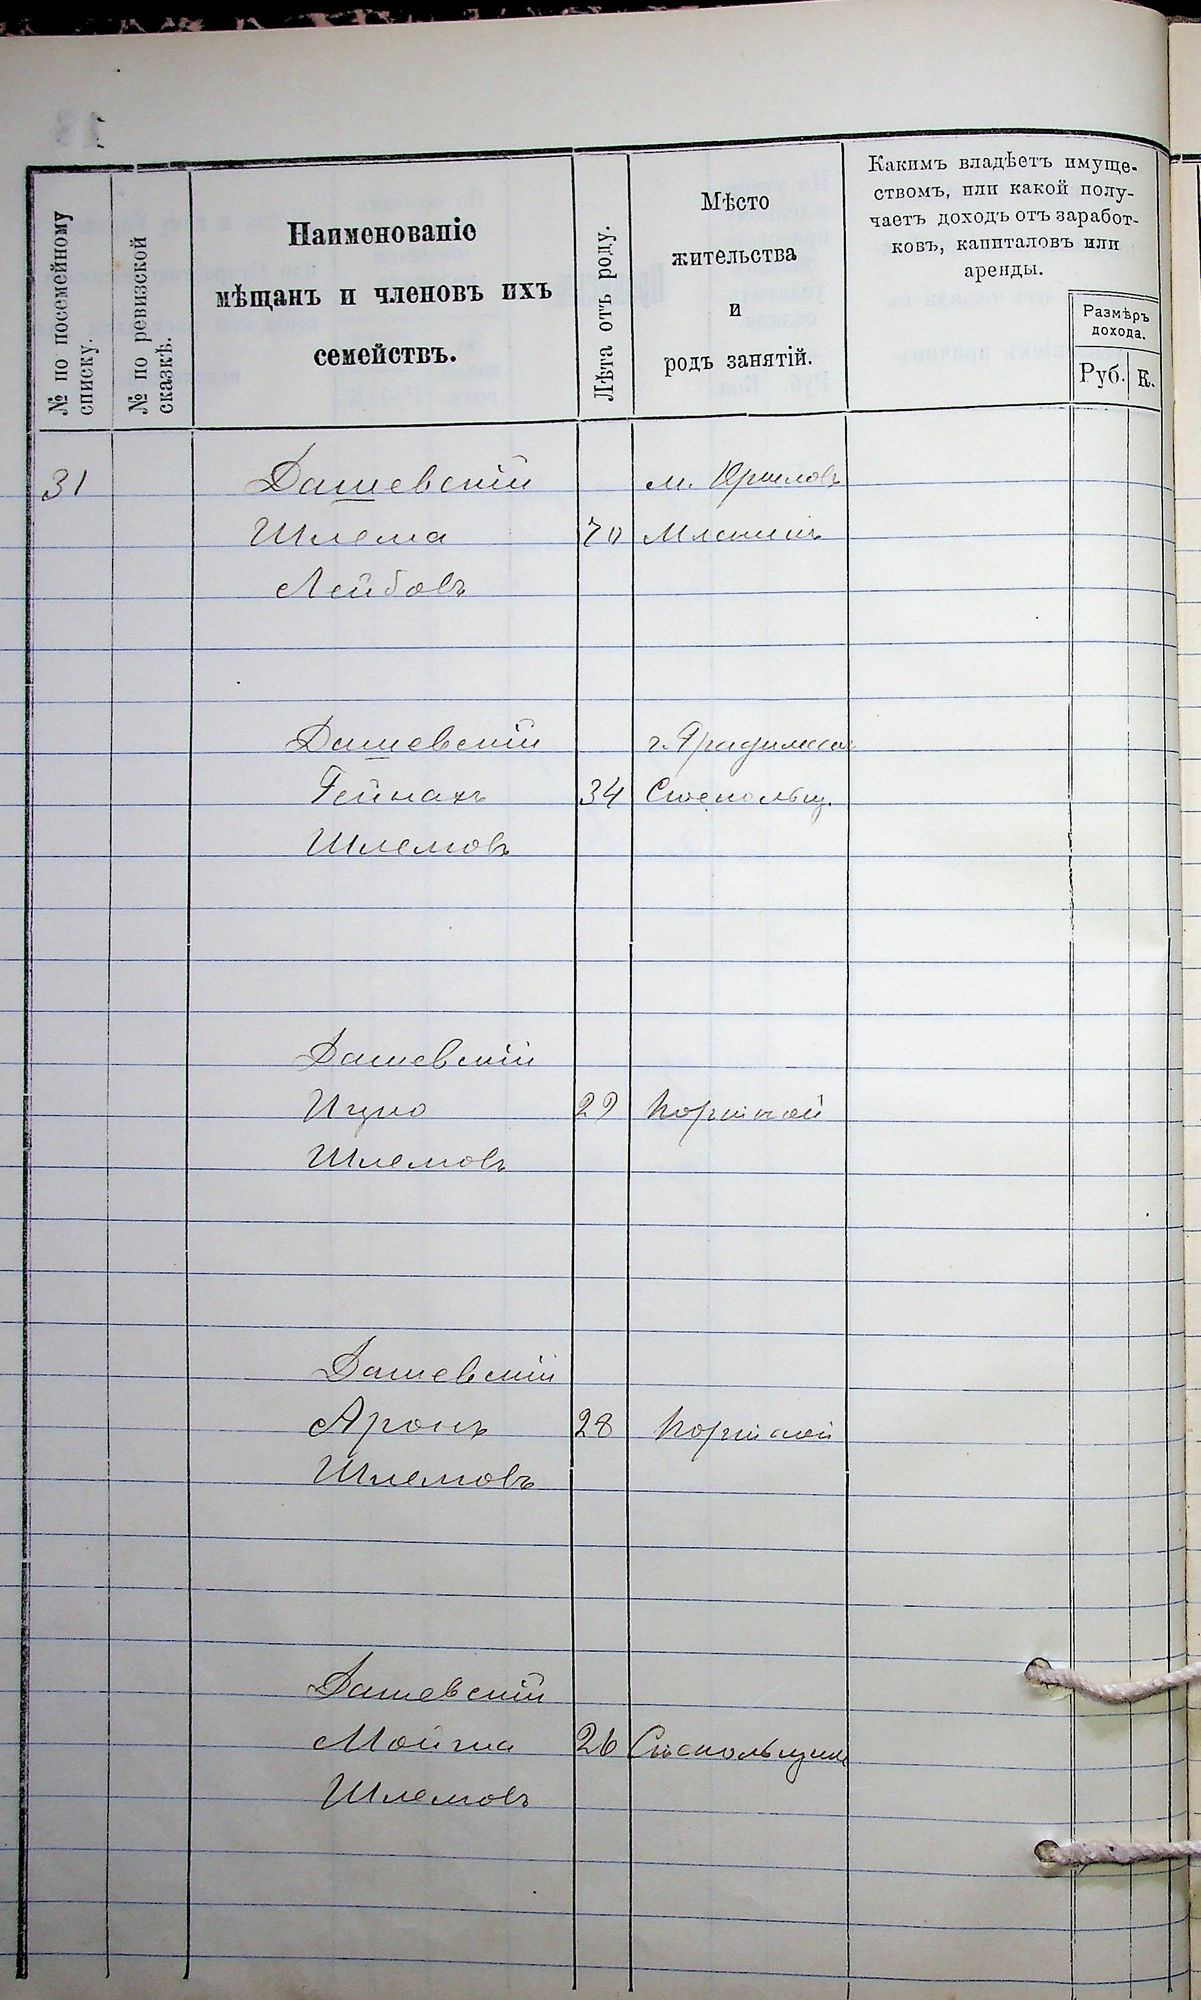 № по посемейному
списку.
№ по ревизской
сказкѣ.
Наименованіе
мѣщанъ и членовъ ихъ
семействъ.
Лѣта отъ роду.
Мѣсто
жительства
и
родъ занятій.
Какимъ владѣетъ имуще-
ствомъ, или какой полу-
чаетъ доходъ отъ заработ-
ковъ, капиталовъ или
аренды.
Размѣръ
дохода.
Руб. К.
31 Дашевскій м.
Шлема 70
Лейбовъ
Дашевскій г.
Гейнахъ 34 Стекольщ.
Шлемовъ
Дашевскій
Ицко 29 Портной
Шлемовъ
Дашевскій
Аронъ 28 Портной
Шлемовъ
Дашевскій
Мойша 26 Стекольщик
Шлемовъ